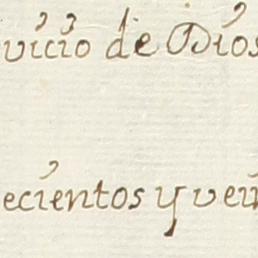 vicio de Dios
ecientos y vein